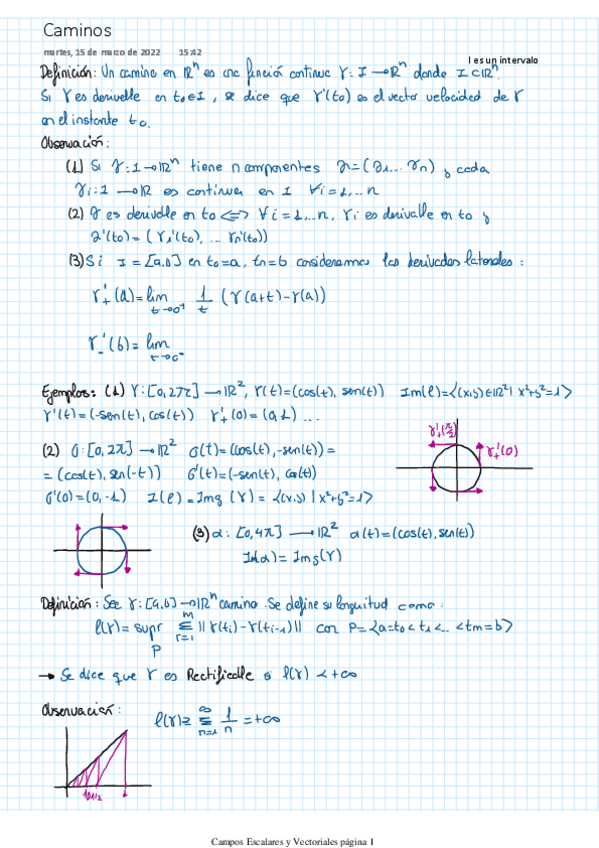 Caminos
martes, 15 de marzo de 2022 15:42
I es un intervalo
Definición: Un camino en ℝⁿ es una función continua γ: I → ℝⁿ donde I ⊂ ℝⁿ.
Si γ es derivable en t₀ ∈ I, se dice que γ'(t₀) es el vector velocidad de γ
en el instante t₀.
Observación:
(1) Si γ: I → ℝⁿ tiene n componentes γ = (γ₁... γₙ) y cada
γᵢ: I → ℝ es continua en I ∀i = 1,... n
(2) γ es derivable en t₀ ⟺ ∀i = 1,... n, γᵢ es derivable en t₀ y
γ'(t₀) = (γ₁'(t₀), ... γₙ'(t₀))
(3) Si I = [a,b] en t₀=a, tₙ=b consideramos las derivadas laterales:
γ₊'(a) = lim t→0⁺ 1/t (γ(a+t)-γ(a))
γ₋'(b) = lim t→0⁻
Ejemplos: (1) γ: [0,2π] → ℝ², γ(t)=(cos(t), sen(t)) Im(ℓ)={(x,y)∈ℝ² | x²+y²=1}
γ'(t) = (-sen(t), cos(t)) γ₊'(0) = (0,1) ...
γ₊'(π/2)
γ₊'(0)
(2) σ: [0,2π] → ℝ² σ(t) = (cos(t), -sen(t)) =
= (cos(t), sen(-t)) σ'(t) = (-sen(t), cos(t)
σ'(0) = (0,-1) I(ℓ) = Img (γ) = {(x,y) | x²+y²=1}
(3) α: [0,4π] → ℝ² α(t) = (cos(t), sen(t))
Im(α) = Img(γ)
Definición: Sea γ: [a,b] → ℝⁿ camino. Se define su longuitud como:
ℓ(γ) = supr P Σ r=1 M ||γ(tᵢ) - γ(tᵢ₋₁)|| con P = {a=t₀ < t₁ <.. < tm=b}
→ Se dice que γ es Rectificable si ℓ(γ) < +∞
Observación:
ℓ(γ) ≥ Σ n=1 ∞ 1/n = +∞
Campos Escalares y Vectoriales página 1